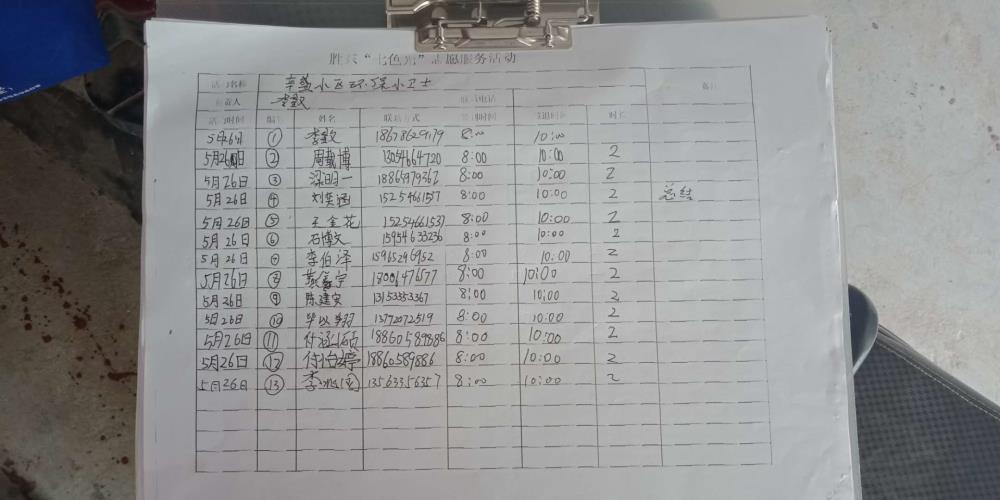 胜兴“七色光”志愿服务活动
活动名称 辛盛小区环保小卫士 备注
负责人 李毅 联系电话
活动时间 编号 姓名 联系方式 签到时间 签退时间 时长
5月26日 ① 李毅 18678629179 8:00 10:00
5月26日 ② 周勤博 13054664720 8:00 10:00 2
5月26日 ③ 梁明一 18865979362 8:00 10:00 2
5月26日 ④ 刘奕涵 15254661537 8:00 10:00 2 总结
5月26日 ⑤ 王金花 15254661537 8:00 10:00 2
5月26日 ⑥ 石博文 15954633236 8:00 10:00 2
5月26日 ⑦ 李伯泽 15965296952 8:00 10:00 2
5月26日 ⑧ 8:00 10:00 2
5月26日 ⑨ 陈建安 13153353367 8:00 10:00 2
5月26日 ⑩ 13772072519 8:00 10:00 2
5月26日 ⑪ 18860589886 8:00 10:00 2
5月26日 ⑫ 付怡婷 18860589886 8:00 10:00 2
5月26日 ⑬ 13563356357 8:00 10:00 2